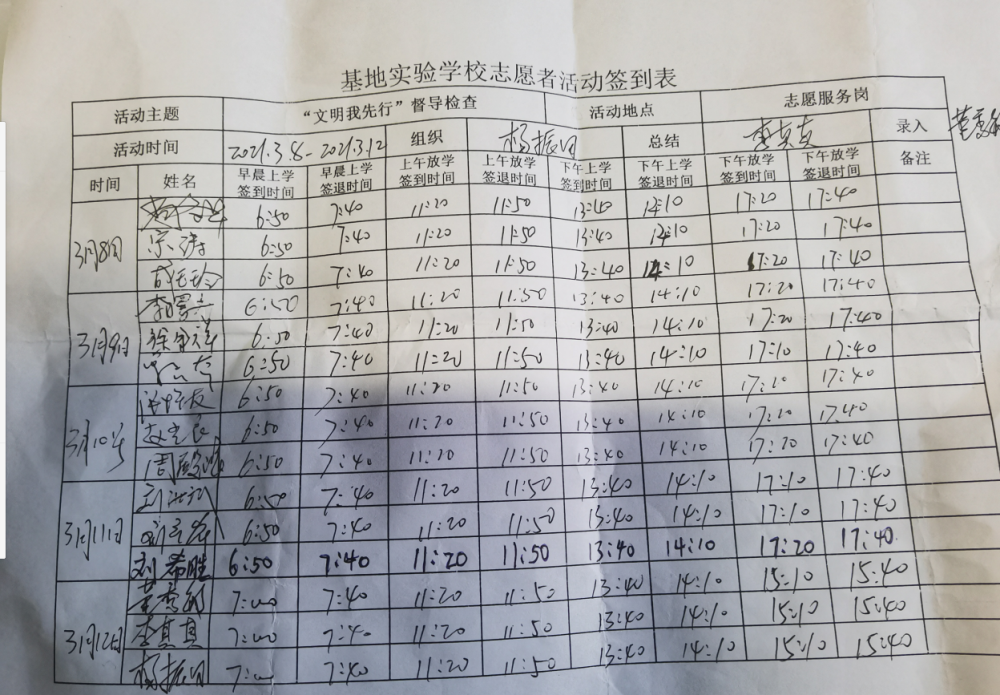 基地实验学校志愿者活动签到表
活动主题 “文明我先行”督导检查 活动地点 志愿服务岗
活动时间 2021.3.8-2021.3.12 组织 杨振田 总结 李真真 录入
时间 姓名 早晨上学签到时间 早晨上学签退时间 上午放学签到时间 上午放学签退时间 下午上学签到时间 下午上学签退时间 下午放学签到时间 下午放学签退时间 备注
3月8日 6:50 7:40 11:20 11:50 13:40 14:10 17:20 17:40
6:50 7:40 11:20 11:50 13:40 14:10 17:20 17:40
6:50 7:40 11:20 11:50 13:40 14:10 17:20 17:40
3月9日 6:50 7:40 11:20 11:50 13:40 14:10 17:20 17:40
6:50 7:40 11:20 11:50 13:40 14:10 17:20 17:40
6:50 7:40 11:20 11:50 13:40 14:10 17:10 17:40
3月10号 6:50 7:40 11:20 11:50 13:40 14:10 17:20 17:40
6:50 7:40 11:20 11:50 13:40 14:10 17:20 17:40
6:50 7:40 11:20 11:50 13:40 14:10 17:20 17:40
3月11日 6:50 7:40 11:20 11:50 13:40 14:10 17:10 17:40
6:50 7:40 11:20 11:50 13:40 14:10 17:10 17:40
刘希胜 6:50 7:40 11:20 11:50 13:40 14:10 17:20 17:40
3月12日 7:00 7:40 11:20 11:50 13:40 14:10 15:10 15:40
李真真 7:00 7:40 11:20 11:50 13:40 14:10 15:10 15:40
杨振田 7:00 7:40 11:20 11:50 13:40 14:10 15:10 15:40